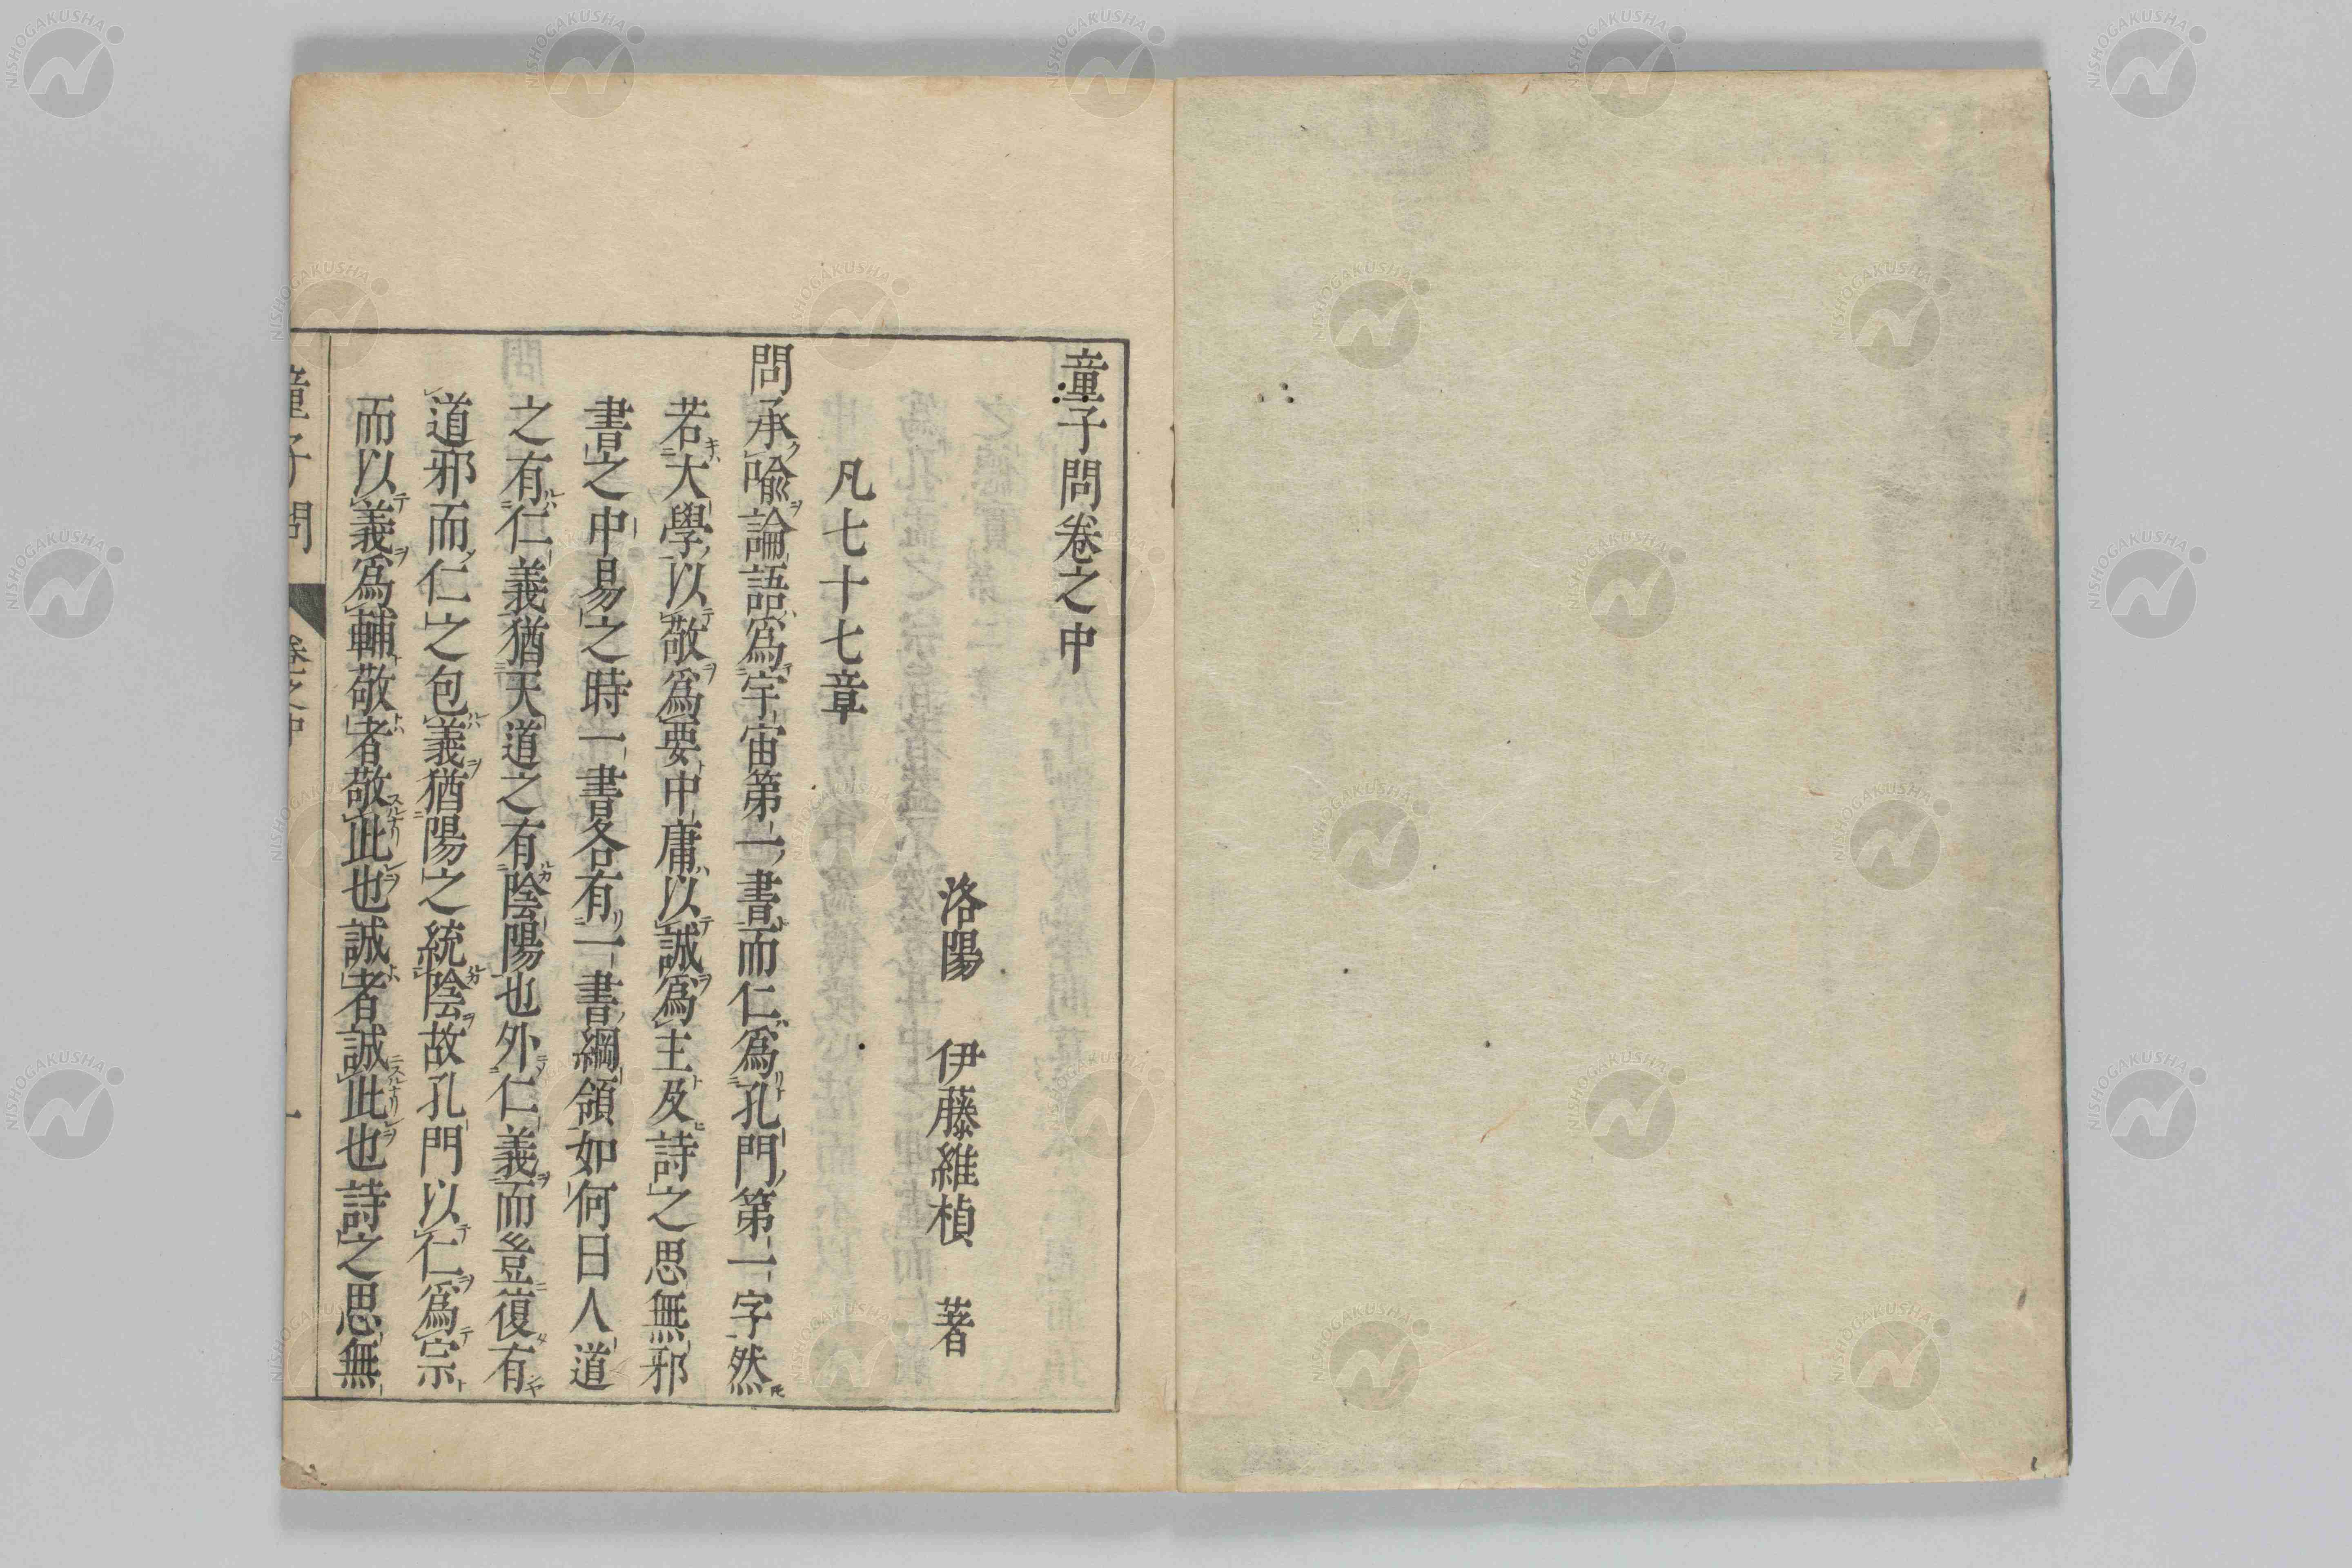 童子問卷之中
洛陽 伊藤維楨 著
凡七十七章
問承喩論語爲宇宙第一書而仁爲孔門第一字然
若大學以敬爲要中庸以誠爲主及詩之思無邪
書之中易之時一書各有一書綱領如何曰人道
之有仁義猶天道之有陰陽也外仁義而豈復有
道邪而仁之包義猶陽之統陰故孔門以仁爲宗
而以義爲輔敬者敬此也誠者誠此也詩之思無
童子問 卷之中 一
NISHOGAKUSHA